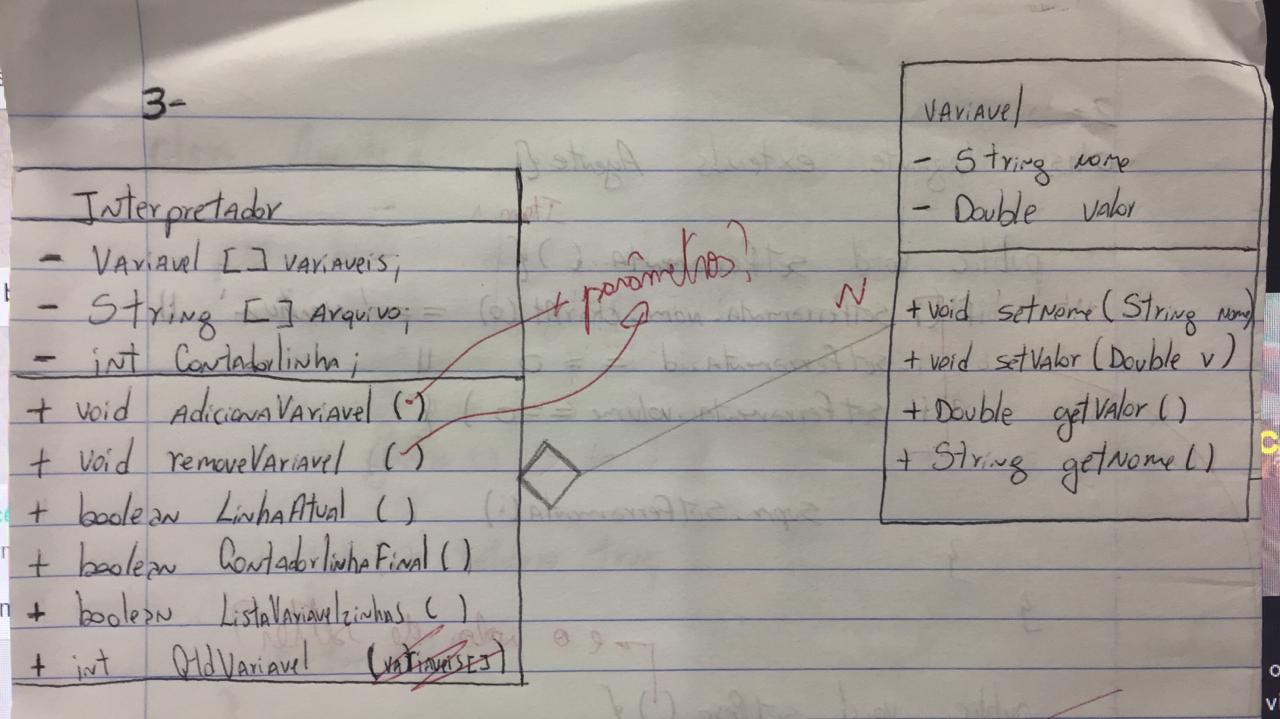 3-
Interpretador
- Variavel [] variaveis;
- String [] Arquivo;
- int Contadorlinha;
+ void AdicionaVariavel (.)
+ void removeVariavel ( )
+ boolean LinhaAtual ( )
+ boolean ContadorlinhaFinal ( )
+ boolean ListaVariavelzinhas ( )
+ int QtdVariavel (variaveis[])
+ parâmetros?
N
Variavel
- String nome
- Double valor
+ void setNome (String nome)
+ void setValor (Double v)
+ Double getValor ()
+ String getNome ()